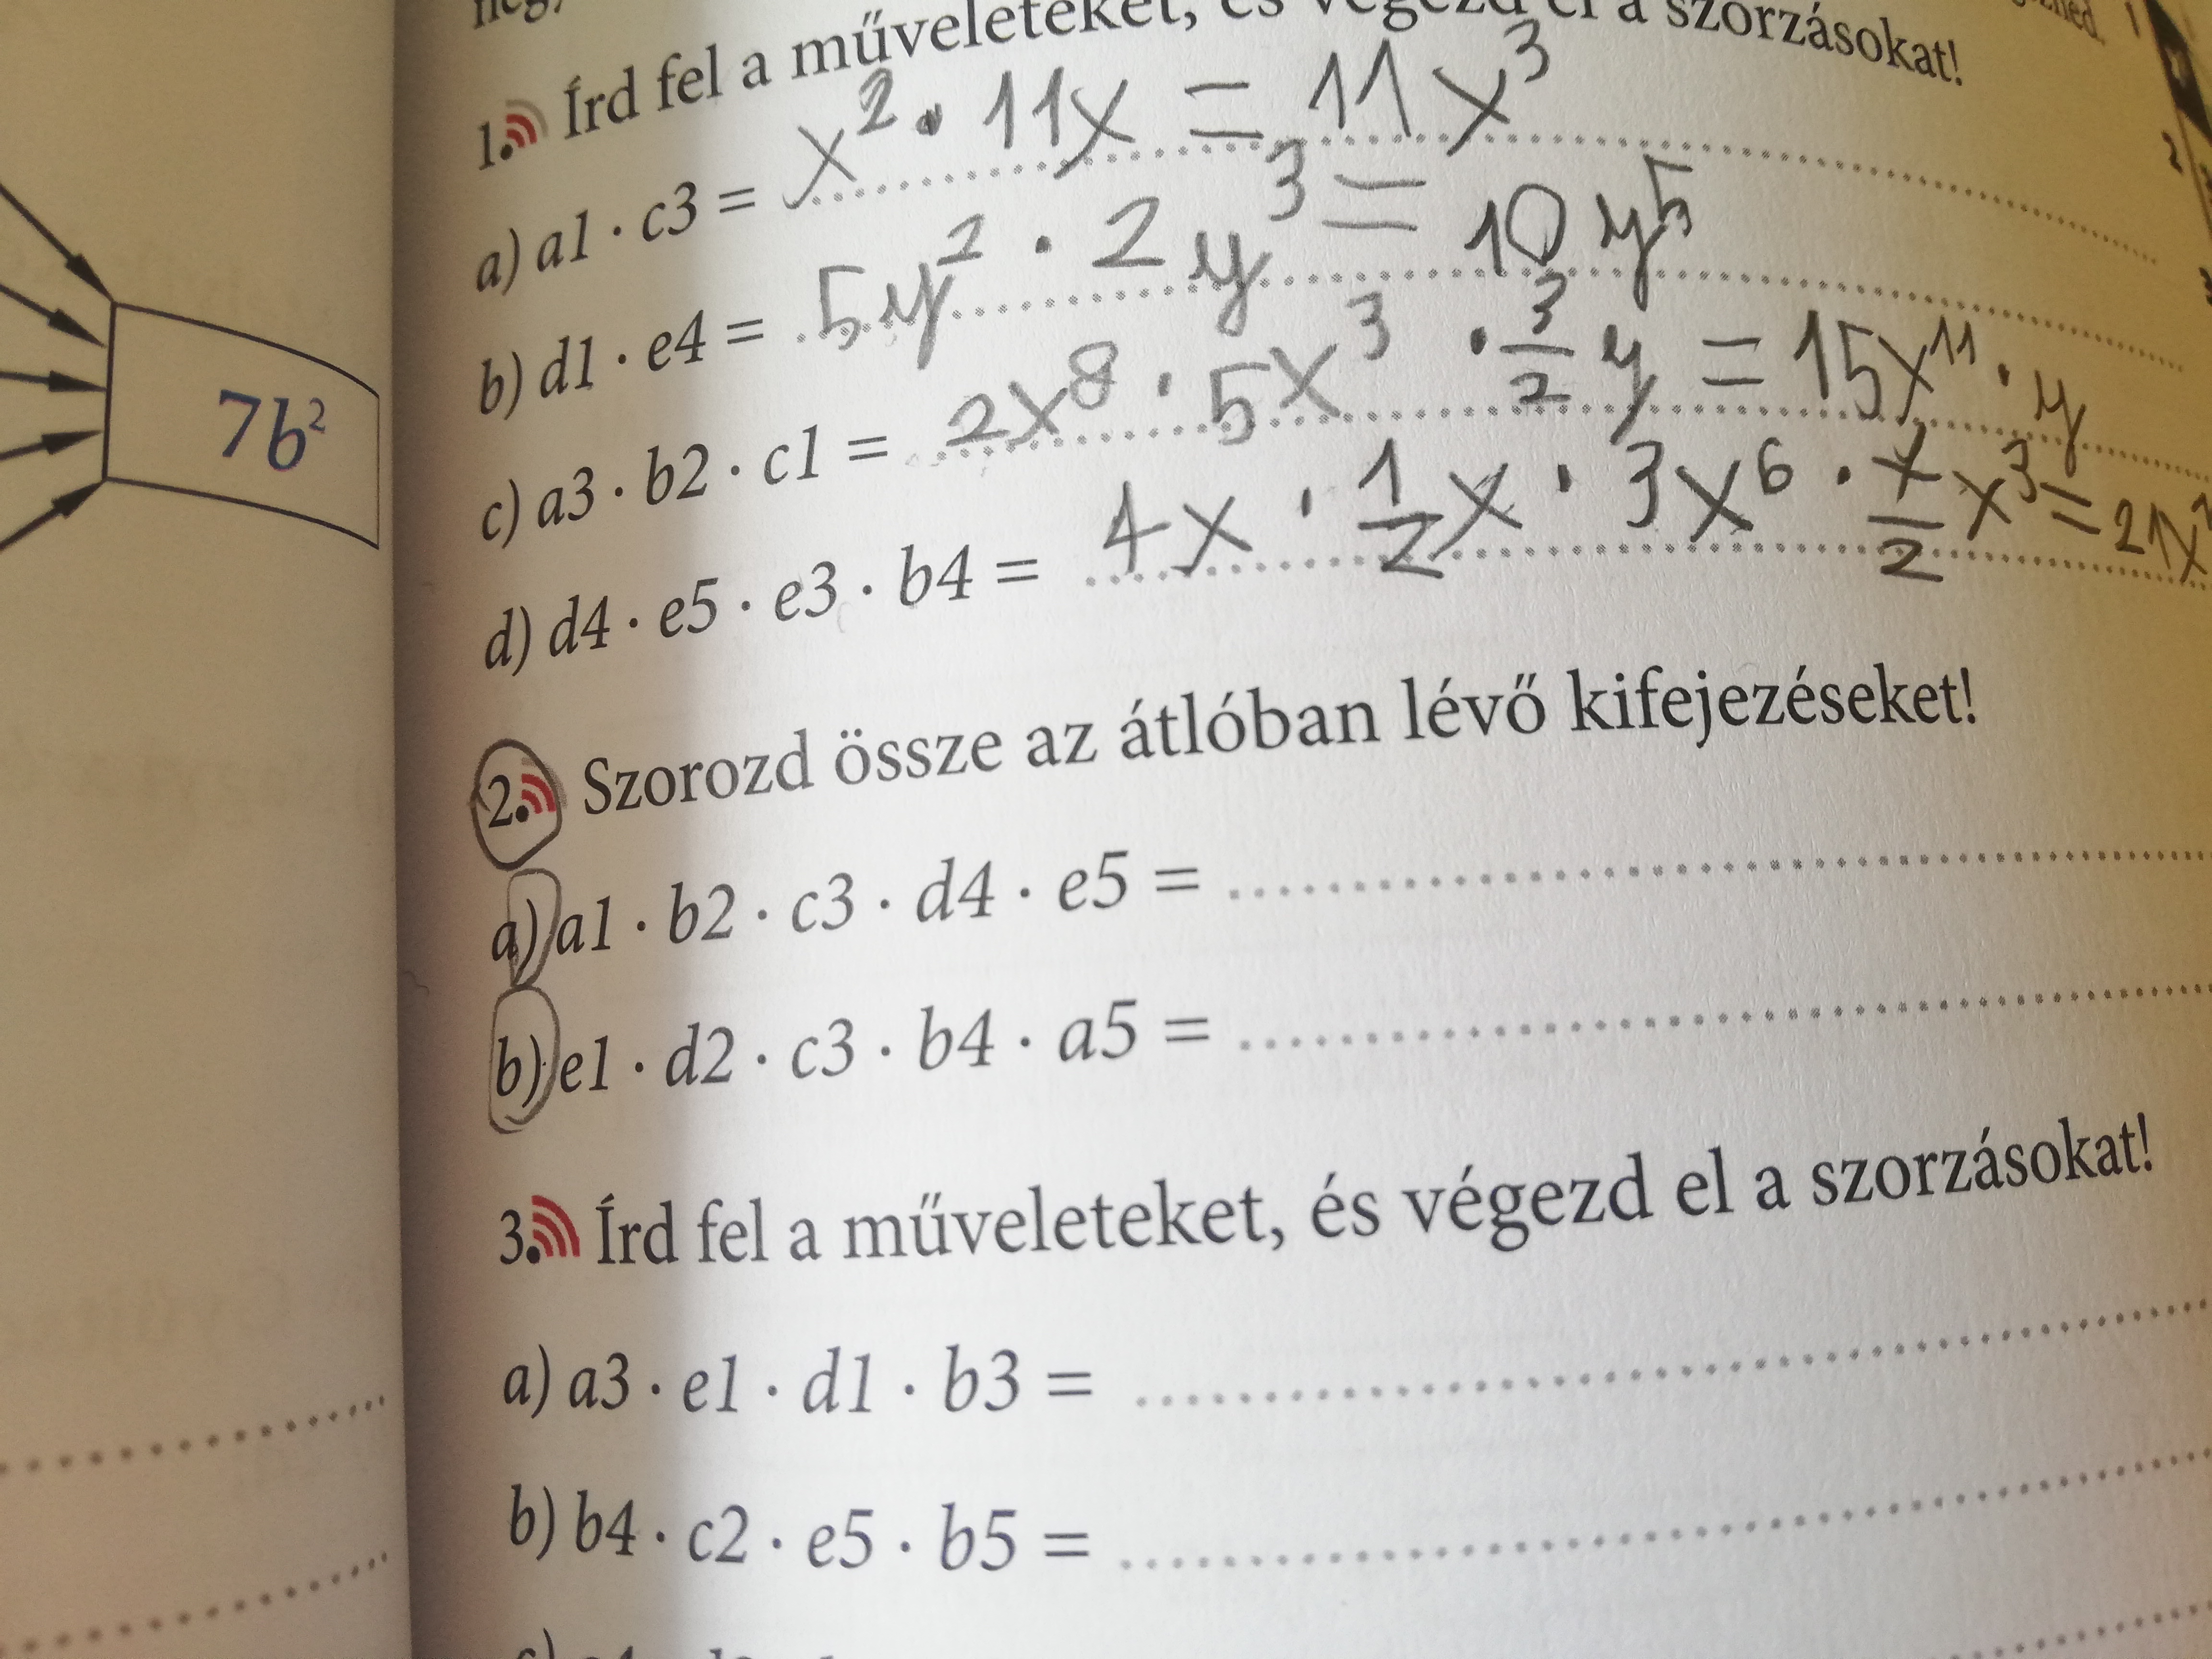 1. Írd fel a műveleteket, és végezd el a szorzásokat!
a) a1 · c3 = x² · 11x = 11x³
b) d1 · e4 = 5y² · 2y³ = 10y⁵
c) a3 · b2 · c1 = 2x⁸ · 5x³ · 3/2 y = 15x¹¹ · y
d) d4 · e5 · e3 · b4 = 4x · 1/2 x · 3x⁶ · 7/2 x³ = 21x
7b²
2. Szorozd össze az átlóban lévő kifejezéseket!
a) a1 · b2 · c3 · d4 · e5 =
b) e1 · d2 · c3 · b4 · a5 =
3. Írd fel a műveleteket, és végezd el a szorzásokat!
a) a3 · e1 · d1 · b3 =
b) b4 · c2 · e5 · b5 =